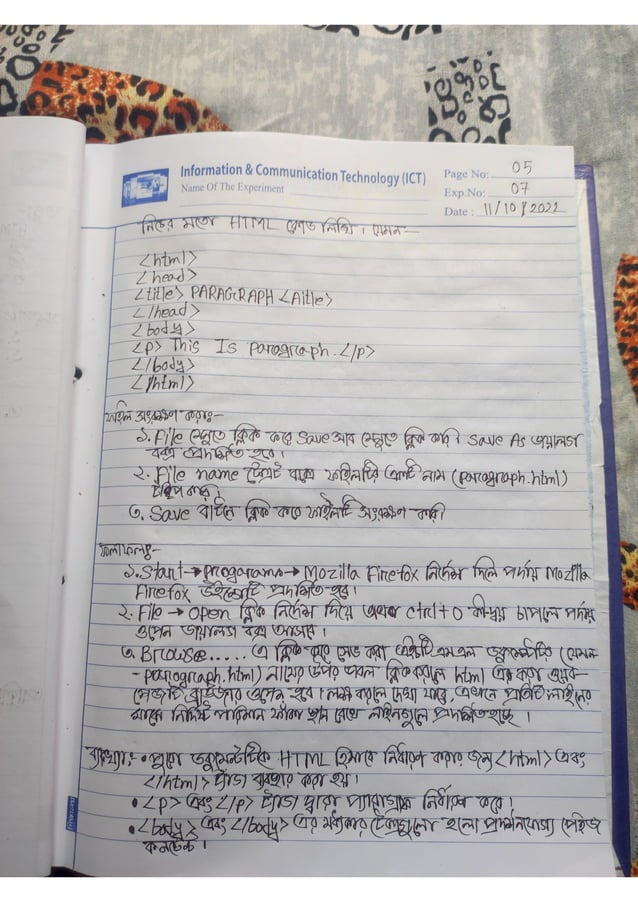 Information & Communication Technology (ICT)
Name Of The Experiment
Page No: 05
Exp.No: 07
Date : 11/10/2022
নিচের মতো HTML কোড লিখি। যেমন:-
<html>
<head>
<title> PARAGRAPH </title>
</head>
<body>
<p> This Is paragraph. </p>
</body>
</html>
ফাইল সংরক্ষণ করাঃ-
১. File মেনুতে ক্লিক করে save আব মেনুতে ক্লিক করি। save As ডায়ালগ
বক্স প্রদর্শিত হবে।
২. File name টেক্সট বক্সে ফাইলটির একটি নাম (paragraph.html)
টাইপ করি।
৩. Save বাটনে ক্লিক করে ফাইলটি সংরক্ষণ করি।
ফলাফলঃ-
১. Start → programs → Mozilla Firefox নির্দেশ দিলে পর্দায় Mozilla
Firefox উইন্ডোটি প্রদর্শিত হবে।
২. File → open ক্লিক নির্দেশ দিয়ে অথবা ctrl+O কীদ্বয় চাপলে পর্দায়
ওপেন ডায়ালগ বক্স আসবে।
৩. Browse..... এ ক্লিক করে সেভ করা এইচটিএমএল ডকুমেন্টটির (যেমন
-paragraph.html) নামের উপর ডাবল ক্লিক করলে html এর করা ওয়েব-
পেজটি ব্রাউজার ওপেন হবে। লক্ষ করলে দেখা যাবে, এখানে প্রতিটি লাইনের
মাঝে নির্দিষ্ট পরিমান ফাঁকা স্থান রেখে লাইনগুলো প্রদর্শিত হচ্ছে।
ব্যাখ্যাঃ- • পুরো ডকুমেন্টটিকে HTML হিসাবে নির্ধারণ করার জন্য <html> এবং
</html> ট্যাগ ব্যবহার করা হয়।
• <p> এবং </p> ট্যাগ দ্বারা প্যারাগ্রাফ নির্ধারণ করে।
• <body> এবং </body> এর মধ্যকার টেক্সটগুলো হলো প্রদর্শনযোগ্য পেইজ
কনটেন্ট।